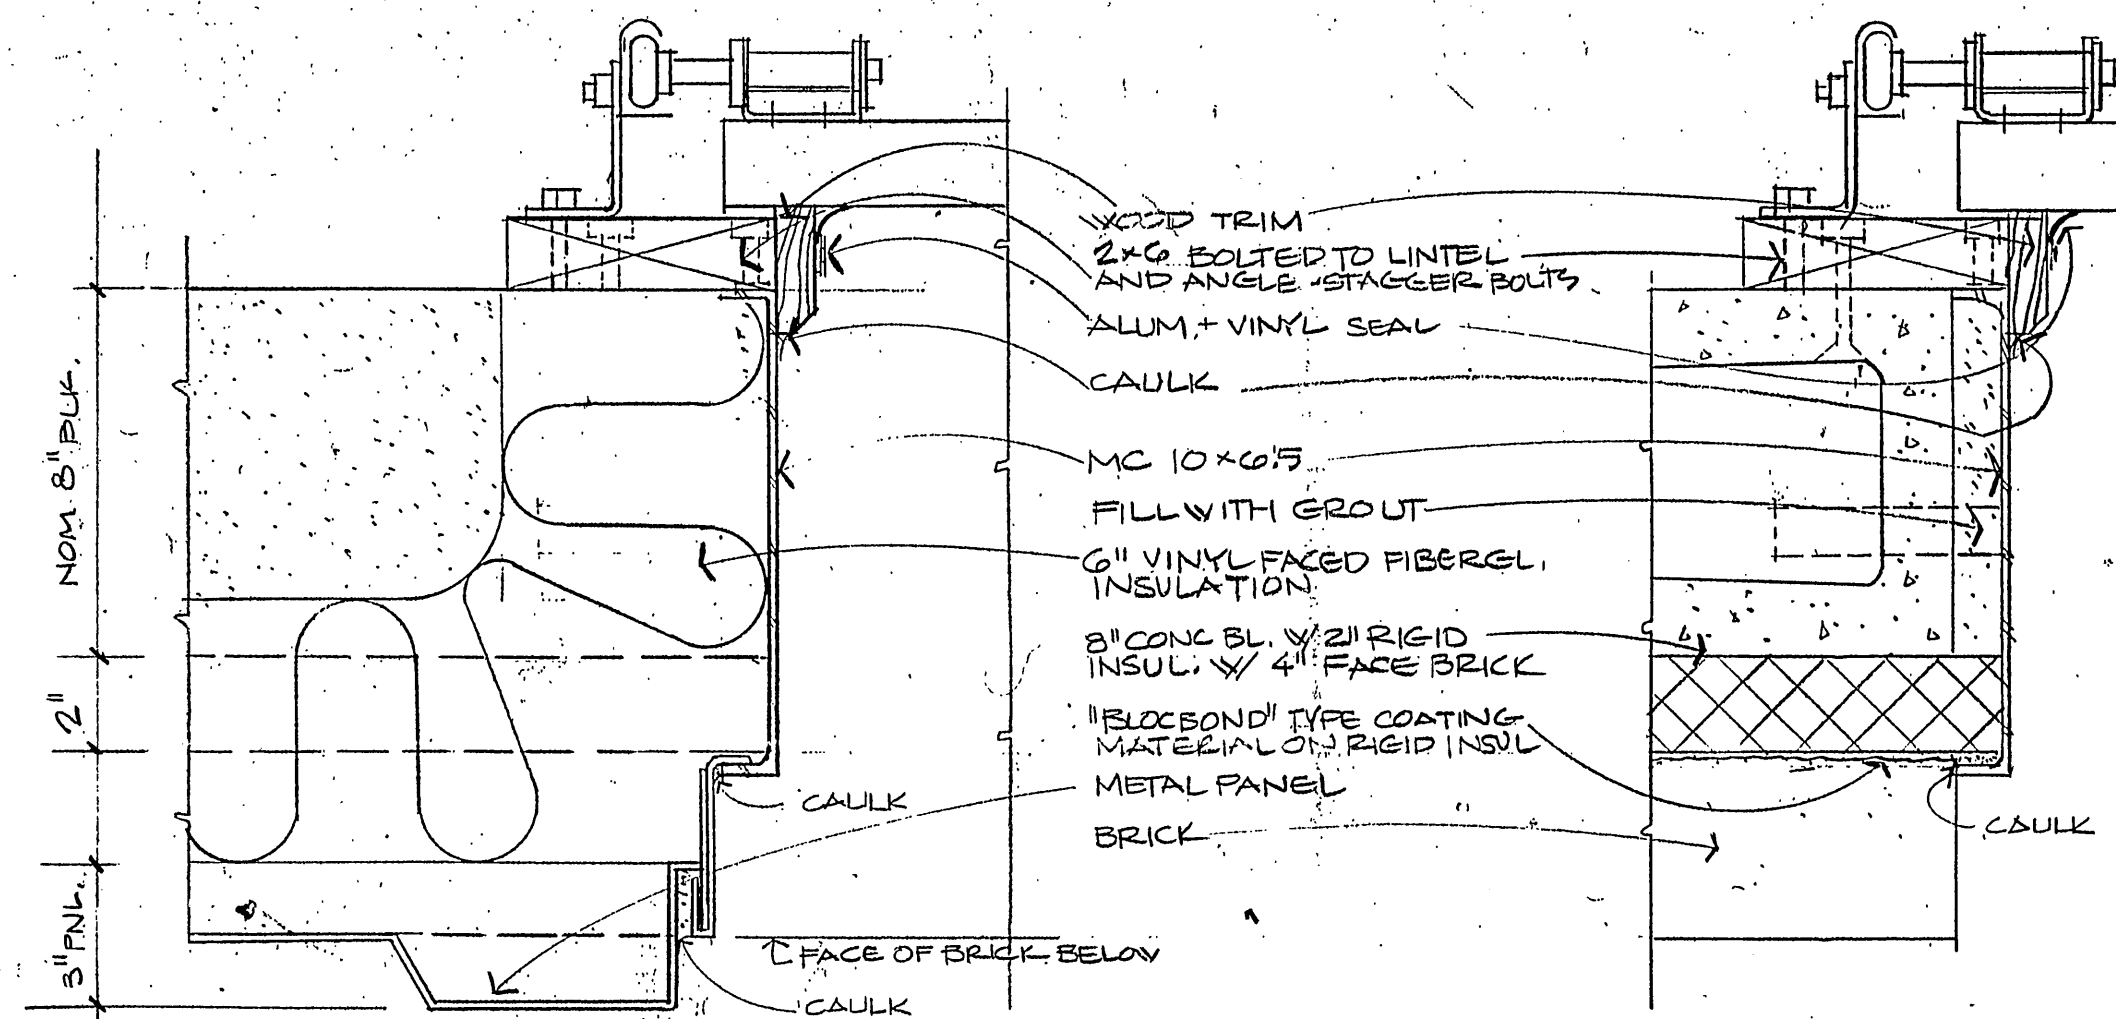 WOOD TRIM
2x6 BOLTED TO LINTEL
AND ANGLE - STAGGER BOLTS
ALUM. + VINYL SEAL
CAULK
MC 10 x 6.5
FILL WITH GROUT
6" VINYL FACED FIBERGL.
INSULATION
8" CONC BL. W/ 2" RIGID
INSUL. W/ 4" FACE BRICK
"BLOCBOND" TYPE COATING
MATERIAL ON RIGID INSUL
METAL PANEL
BRICK
CAULK
FACE OF BRICK BELOW
CAULK
CAULK
NOM. 8" BLK.
2"
3" PNL.